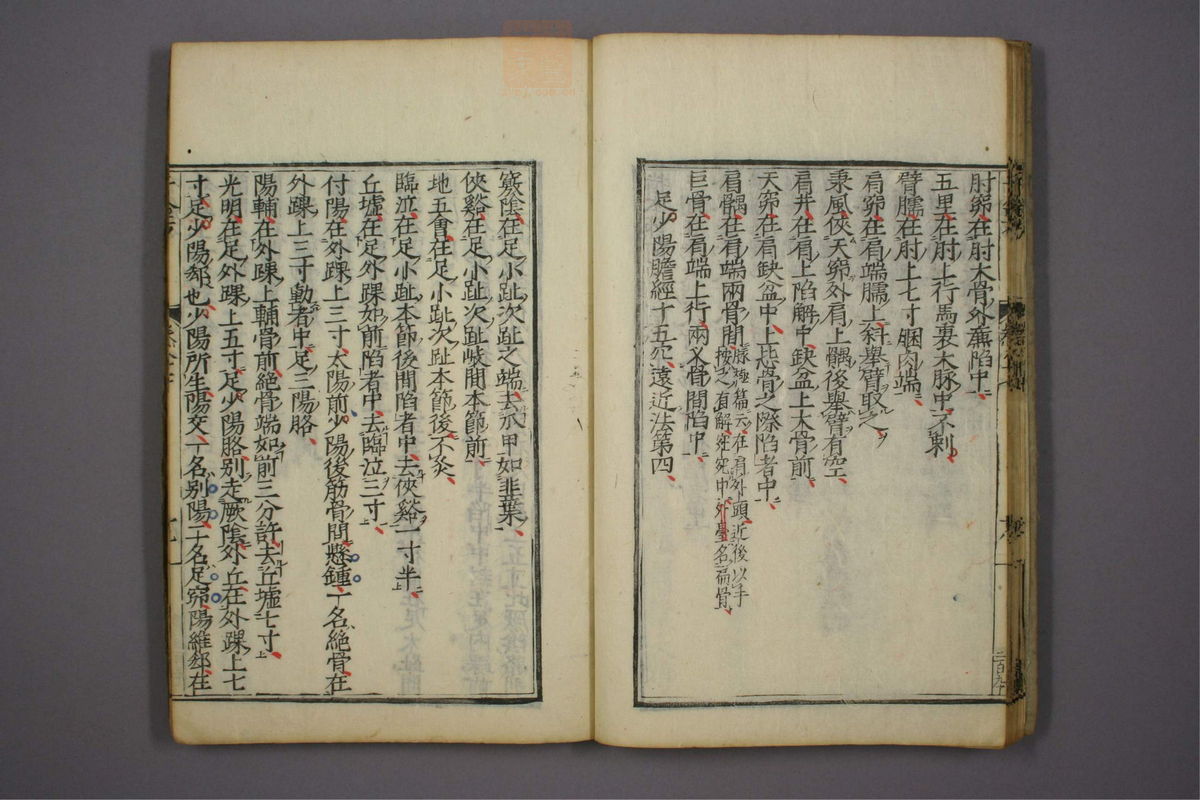 肘窌在肘大骨外廉陷中
五里在肘上行馬裏大脉中不刺
臂臑在肘上七寸䐃肉端
肩窌在肩端臑上斜舉臂取之
秉風俠天窌外肩上髃後舉臂有空
肩井在肩上陷解中缺盆上大骨前
天窌在肩缺盆中上毖骨之際陷者中
肩髃在肩端兩骨間
在肩外頭近後以手
按之有解
外臺名扁骨
巨骨在肩端上行兩叉骨間陷中
足少陽膽經十五穴遠近法第四
竅陰在足小趾次趾之端去爪甲如韭葉
俠谿在足小趾次趾岐間本節前
地五會在足小趾次趾本節後不灸
臨泣在足小趾本節後間陷者中去俠谿一寸半
丘墟在足外踝如前陷者中去臨泣三寸
付陽在外踝上三寸太陽前少陽後筋骨間懸鍾一名絶骨在
外踝上三寸動者中足三陽胳
陽輔在外踝上輔骨前絶骨端如前三分許去丘墟七寸
光明在足外踝上五寸足少陽胳别走厥陰外丘在外踝上七
寸足少陽郄也少陽所生陽交一名别陽一名足窌陽維郄在